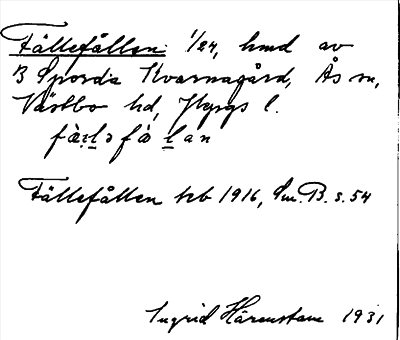 Fällefållen 1/24, hmd av
B Sporda Kvarnagård, Ås sn,
Västbo hd, Jkpgs l.
fὰ:l̠ə få l̠an
Fällefållen hb 1916, Sm. B. s. 54
Ingrid Härenstam 1931